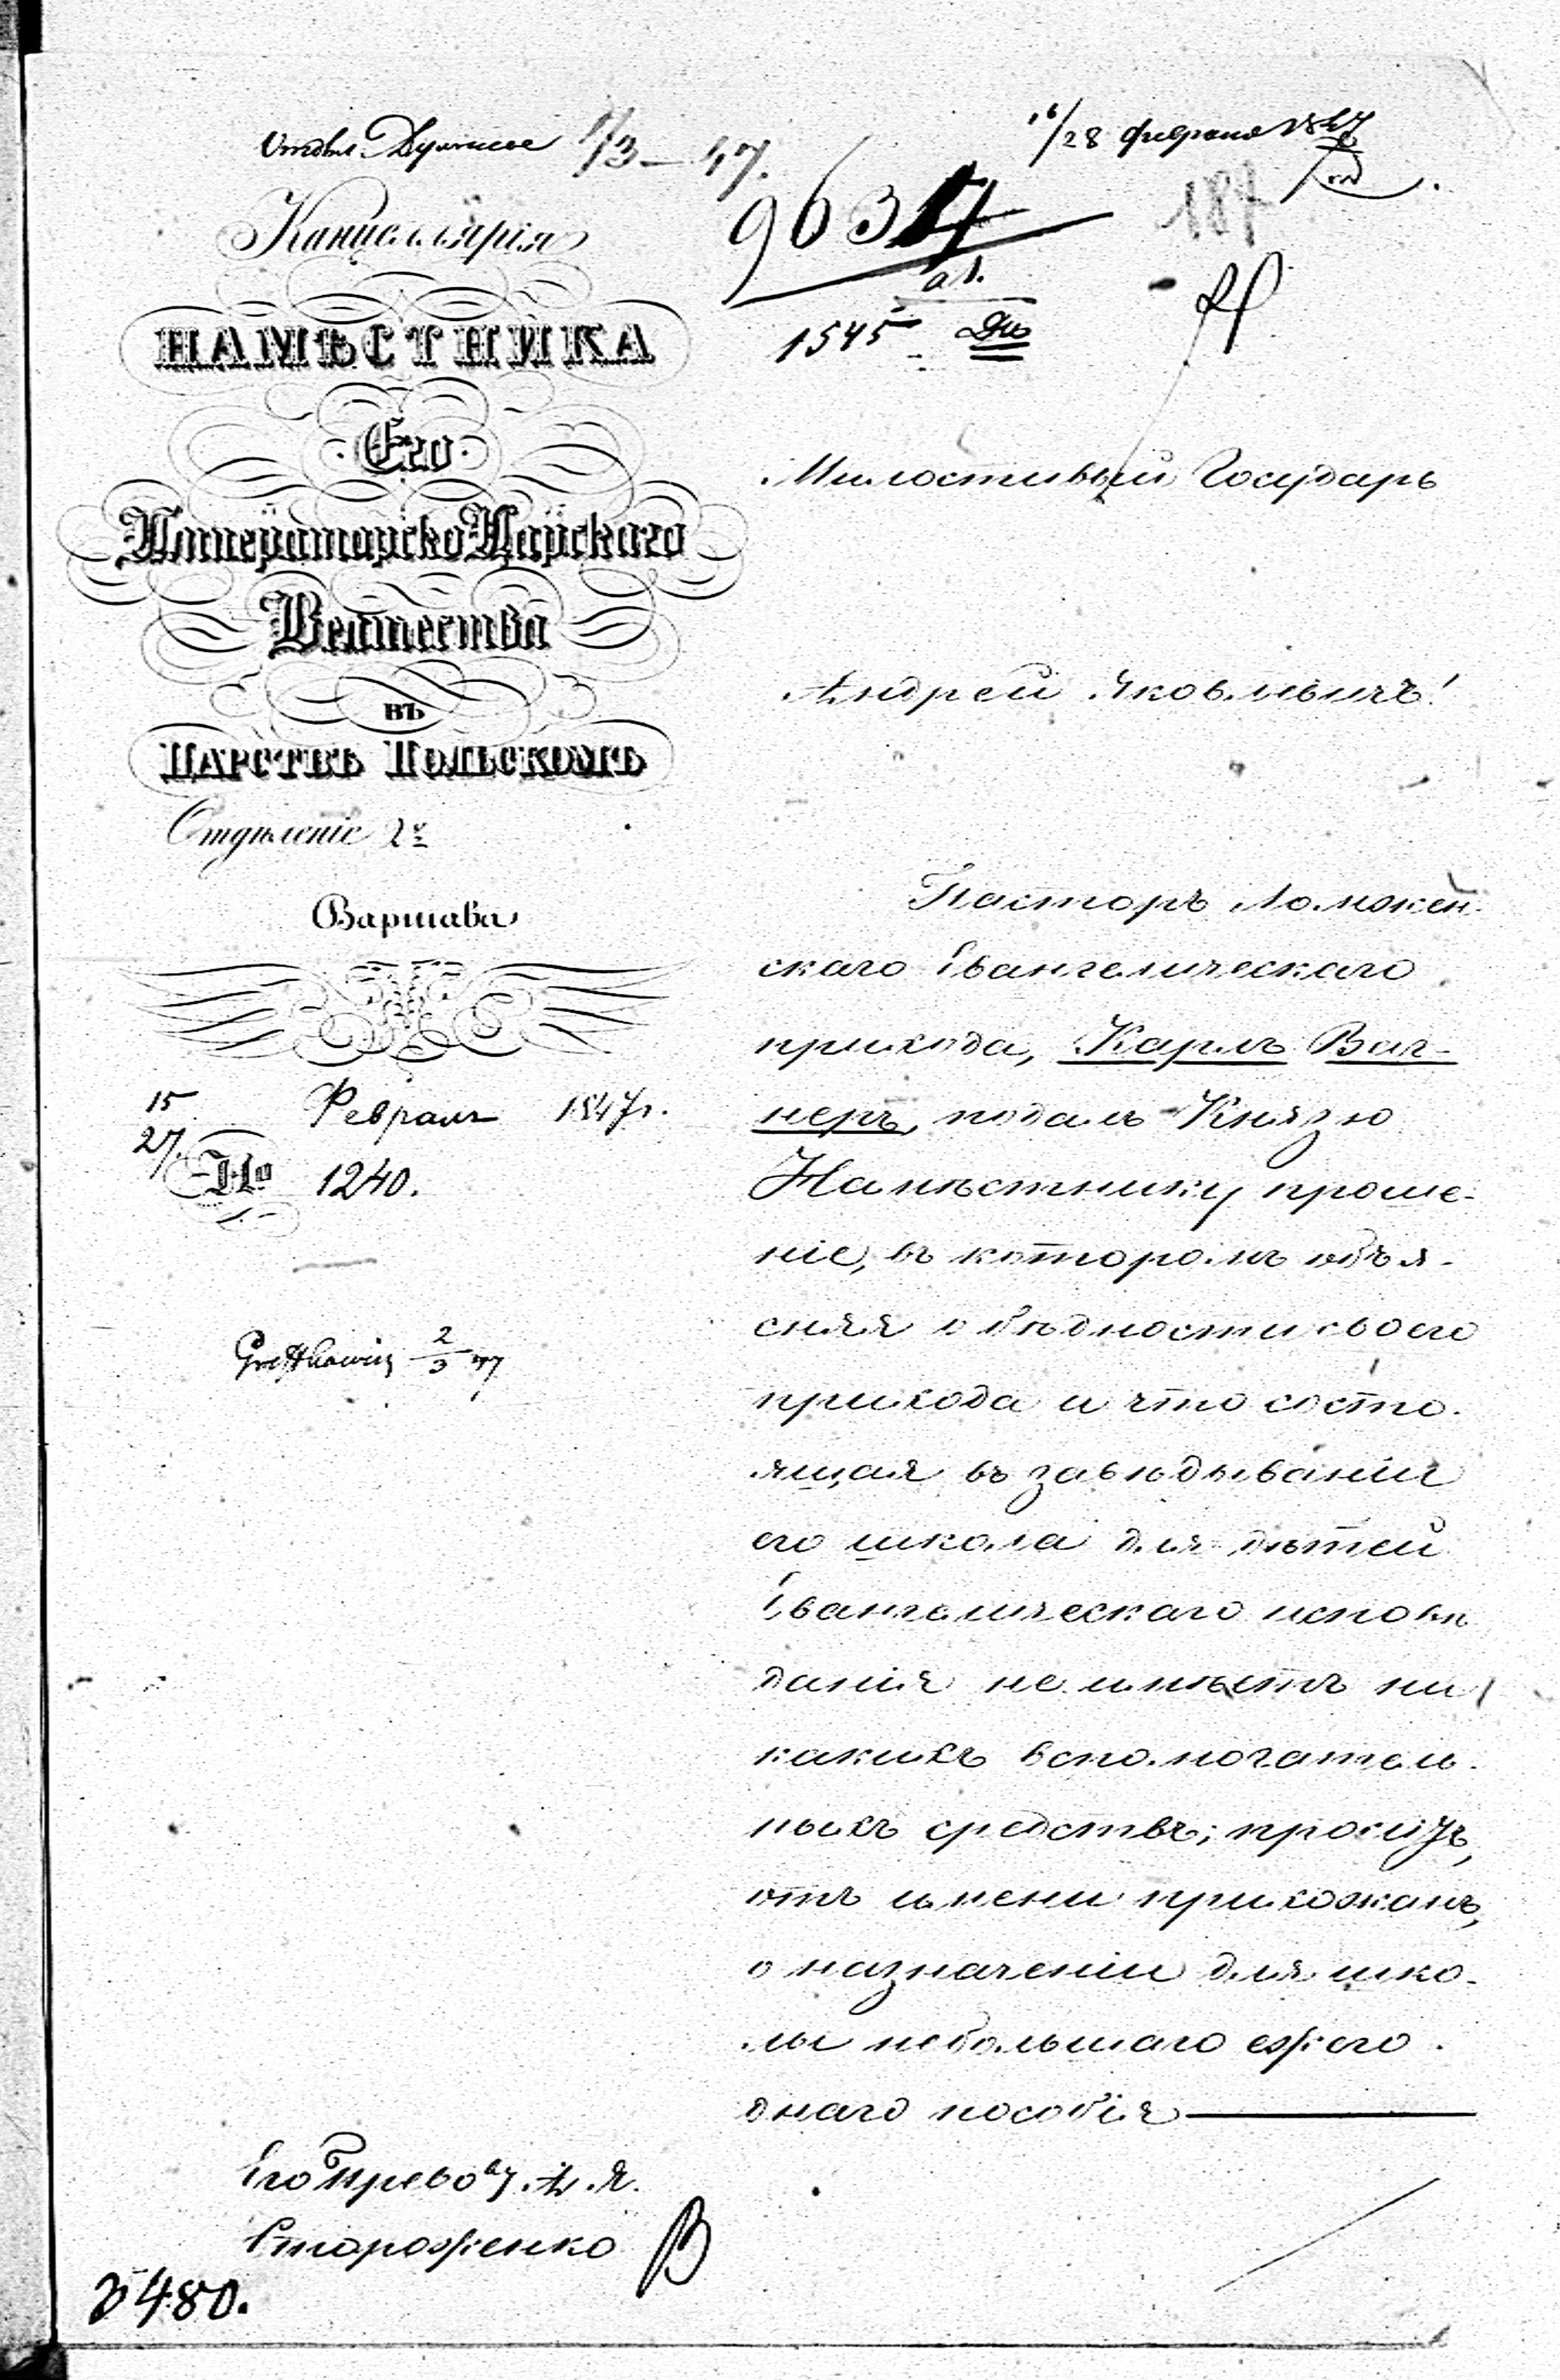 16/28 февраля 1847
9634
187
1545
Канцелярія
НАМѢСТНИКА
Его
ИмператорскоЦарскаго
Величества
въ
Царствѣ Польскомъ
Отдѣленіе 2е
Варшава
15/27 Февраля 1847г.
No 1240.
Милостивый Государь
Андрей Яковлевичъ!
Пасторъ Ломжен-
скаго Евангелическаго
прихода, Карлъ Ваг-
неръ, подалъ Князю
Намѣстнику проше-
ніе, въ которомъ объя-
сняя о бѣдности своего
прихода и что состо-
ящая въ завѣдываніи
его школа для дѣтей
Евангелическаго исповѣ
данія не имѣетъ ни
какихъ вспомогатель-
ныхъ средствъ; проситъ,
отъ имени прихожанъ,
о назначеніи для шко-
лы небольшаго ежего-
днаго пособія
Его Превову. А. Я.
Стороженко
3480.